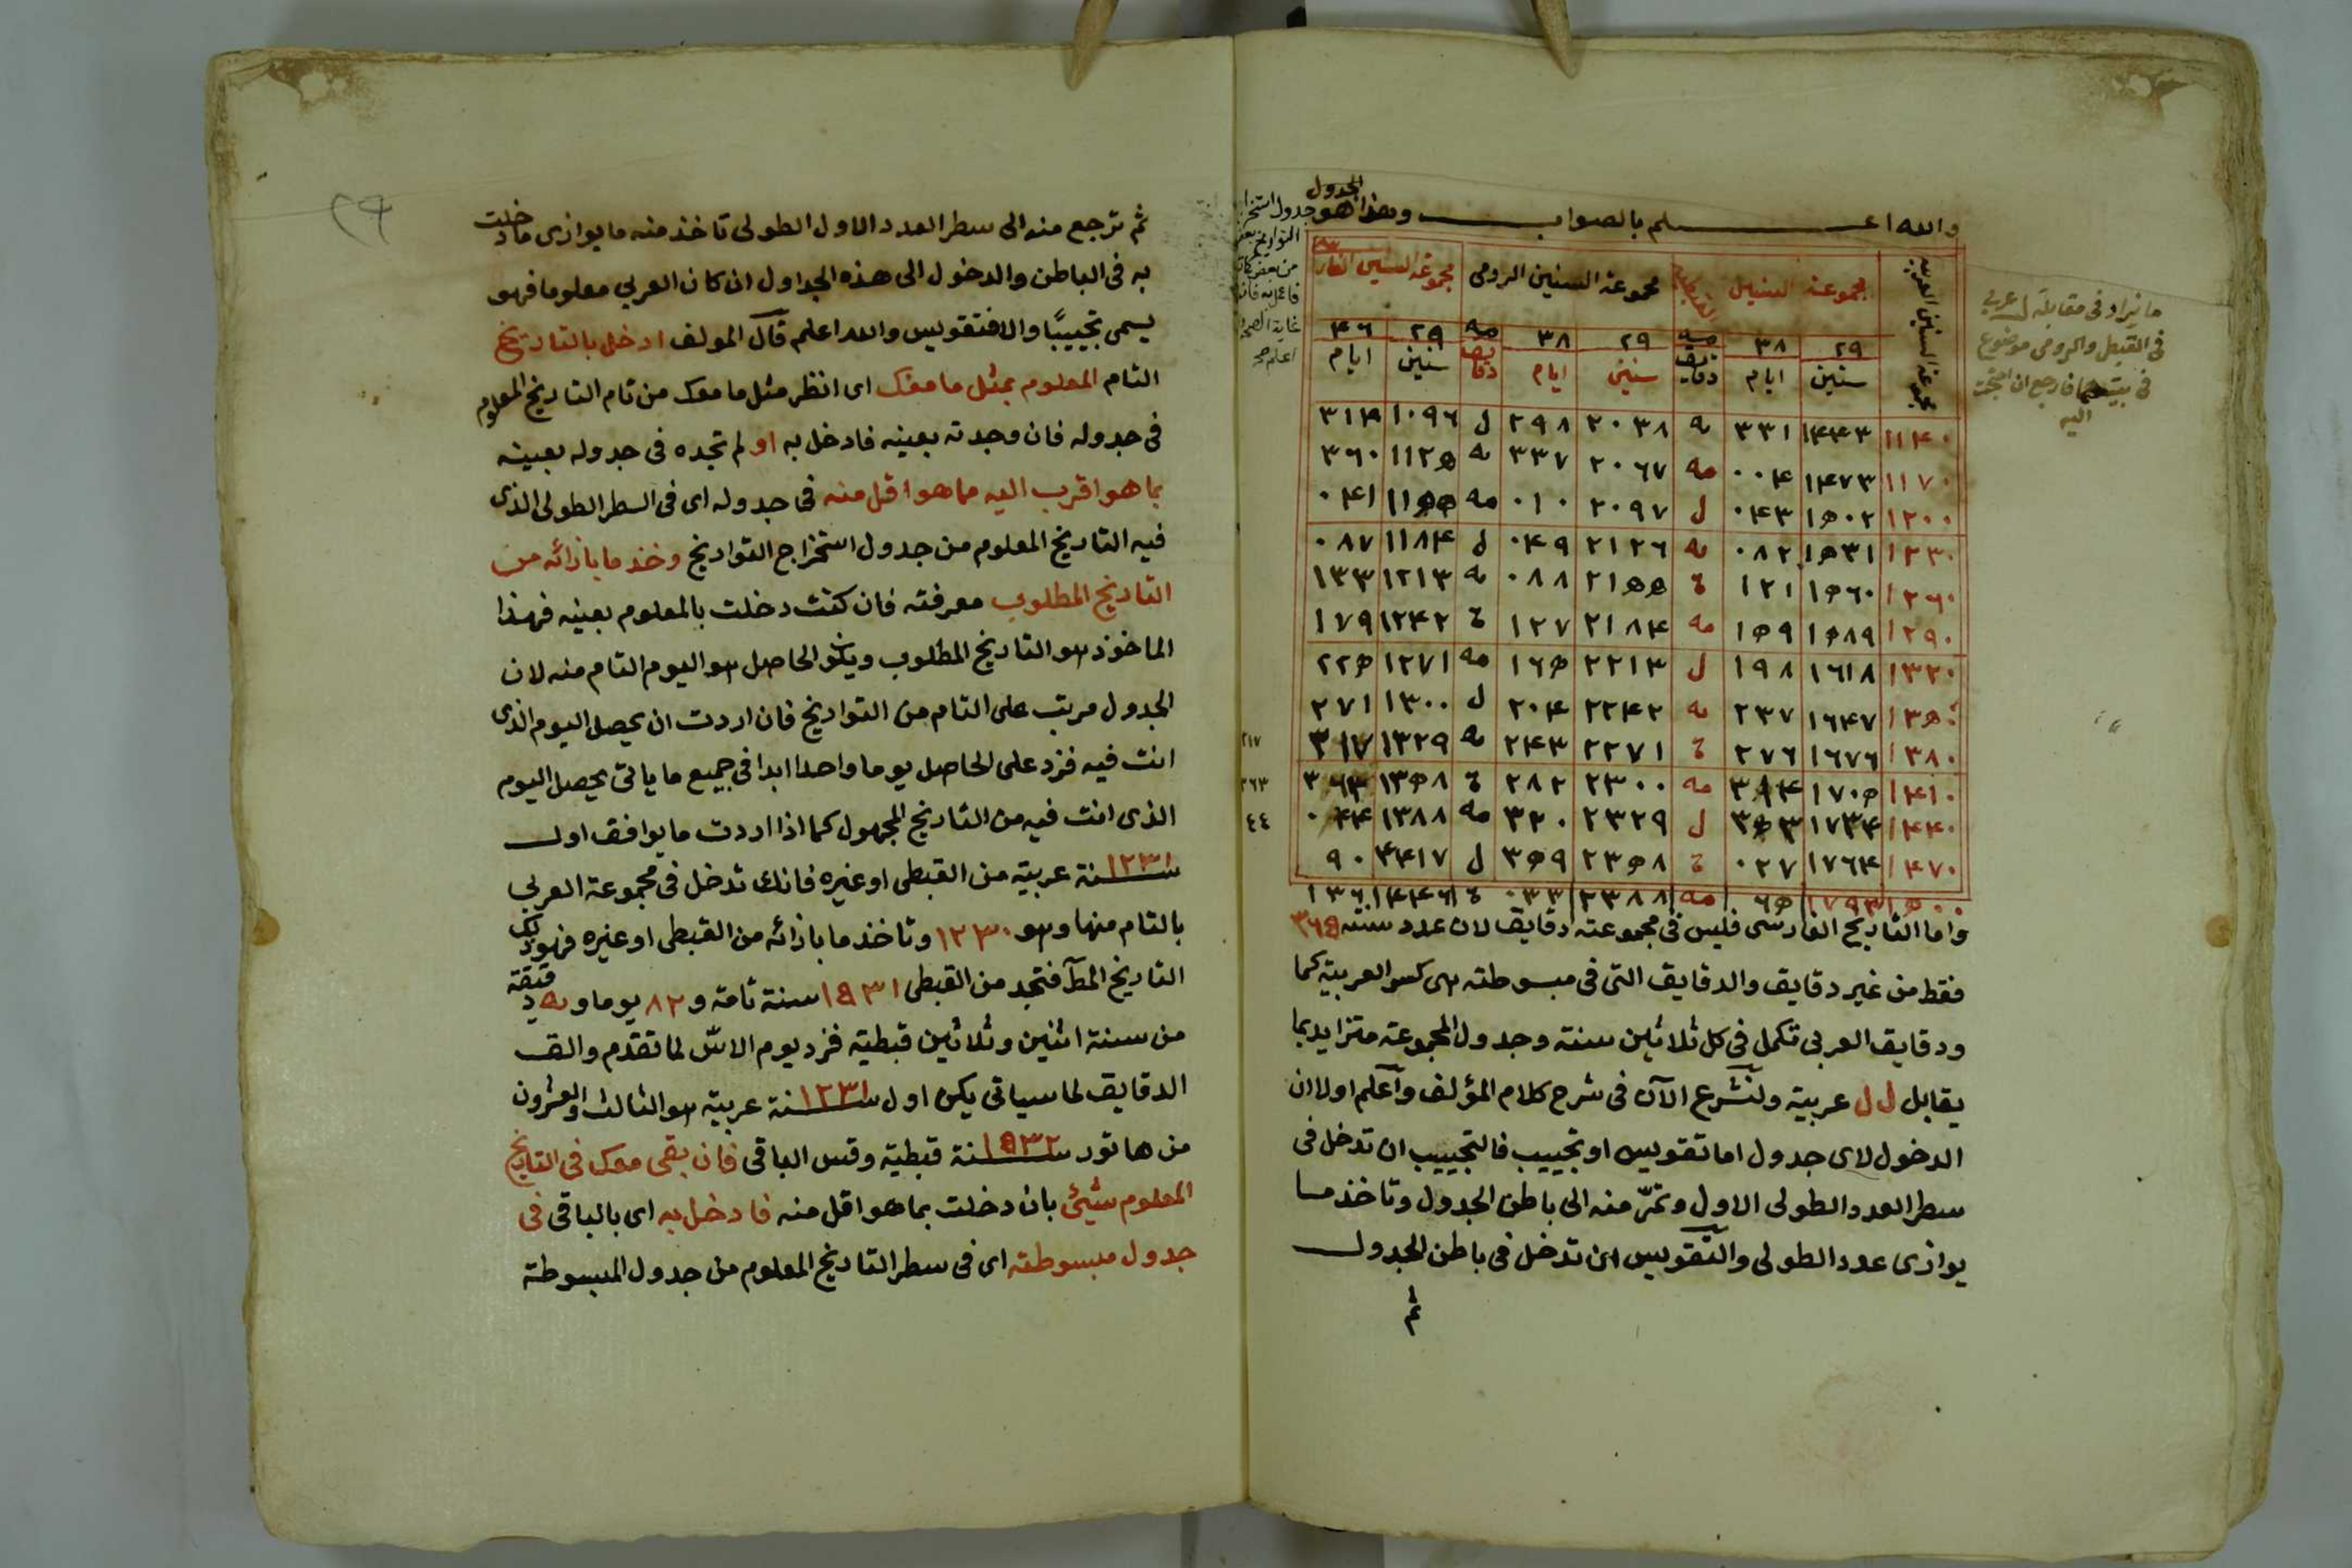 والله اعلم بالصواب وهذا هو الجدول
مجموعة السنين العربية
مجموعة السنين
مجموعة السنين الرومى
مجموعة السنين
٢٩ ٣٨ مه ٢٩ ٣٨ مه ٢٩ ٤٦
سنين ايام دقايق سنين ايام دقايق سنين ايام
١١٤٠ ١٤٤٣ ٣٣١ يه ٢٠٣٨ ٢٩٨ ل ١٠٩٦ ٣١٤
١١٧٠ ١٤٧٣ ٠٠٤ مه ٢٠٦٧ ٣٣٧ يه ١١٢٥ ٣٦٠
١٢٠٠ ١٥٠٢ ٠٤٣ ل ٢٠٩٧ ٠١٠ مه ١١٥٥ ٠٤١
١٢٣٠ ١٥٣١ ٠٨٢ يه ٢١٢٦ ٠٤٩ ل ١١٨٤ ٠٨٧
١٢٦٠ ١٥٦٠ ١٢١ ة ٢١٥٥ ٠٨٨ يه ١٢١٣ ١٣٣
١٢٩٠ ١٥٨٩ ١٥٩ مه ٢١٨٤ ١٢٧ ة ١٢٤٢ ١٧٩
١٣٢٠ ١٦١٨ ١٩٨ ل ٢٢١٣ ١٦٥ مه ١٢٧١ ٢٢٥
١٣٥٠ ١٦٤٧ ٢٣٧ يه ٢٢٤٢ ٢٠٤ ل ١٣٠٠ ٢٧١
١٣٨٠ ١٦٧٦ ٢٧٦ ة ٢٢٧١ ٢٤٣ يه ١٣٢٩ ٣١٧
١٤١٠ ١٧٠٥ ٣١٤ مه ٢٣٠٠ ٢٨٢ ة ١٣٥٨ ٣٦٣
١٤٤٠ ١٧٣٤ ٣٥٣ ل ٢٣٢٩ ٣٢٠ مه ١٣٨٨ ٠٤٤
١٤٧٠ ١٧٦٤ ٠٢٧ ة ٢٣٥٨ ٣٥٩ ل ٤٤١٧ ٩٠
١٥٠٠ ١٧٩٣ ٦٥ مه ٢٣٨٨ ٠٣٣ ة ١٤٤٦ ١٣٦
واما التاريخ الفارسى فليس فى مجموعته دقايق لان عدد سنته ٣٦٥
فقط من غير دقايق والدقايق التى فى مبسوطته هى كسر العربية كما
ودقايق العربى تكمل فى كل ثلاثين سنة وجدول المجموعة متزايد بما
يقابل ل ل عربية ولنشرع الآن فى شرح كلام المؤلف وآعلم اولا ان
الدخول لاى جدول اما تقويس او تجييب فالتجييب ان تدخل فى
سطر العدد الطولى الاول وتمرّ منه الى باطن الجدول وتاخذ مـا
يوازى عدد الطولى والتقويس ان تدخل فى باطن الجدول
ثم
ما يراد فى مقابلة ل عربي
فى القبطى والرومى موضوع
اليه
جدول استخراج
التواريخ
غاية الصحة
٣١٧
٣٦٣
٤٤
ثم ترجع منه الى سطر العدد الاول الطولى تاخذ منه ما يوازى ما دخلت
به فى الباطن والدخول الى هذه الجداول ان كان العربي معلوما فهو
يسمى تجييبًا والا فتقويس والله اعلم قال المولف ادخل بالتاريخ
التام المعلوم بمثل ما معك اى انظر مثل ما معك من تام التاريخ المعلوم
فى جدوله فان وجدته بعينه فادخل به او لم تجده فى جدوله بعينه
بما هو اقرب اليه مما هو اقل منه فى جدوله اى فى السطر الطولى الذى
فيه التاريخ المعلوم من جدول استخراج التواريخ وخذ ما بازائه من
التاريخ المطلوب معرفته فان كنت دخلت بالمعلوم بعينه فهذا
الماخوذ هو التاريخ المطلوب ويكون الحاصل هو اليوم التام منه لان
الجدول مرتب على التام من التواريخ فان اردت ان يحصل اليوم الذى
انت فيه فزد على الحاصل يوما واحدا ابدا فى جميع ما ياتى يحصل اليوم
الذى انت فيه من التاريخ المجهول كما اذا اردت ما يوافق اول
١٢٣١ سنة عربية من القبطى او غيره فانك تدخل فى مجموعة العربي
بالتام منها وهو ١٢٣٠ وتاخذ ما بازائه من القبطى او غيره فهو ذلك
التاريخ المط فتجد من القبطى ١٥٣١ سنة تامة و ٨٢ يوما و يه دقيقة
من سنة اثنين وثلاثين قبطية فزد يوم الاسّ لما تقدم والق
الدقايق لما سياتى يكن اول ١٢٣١ سنة عربية هو الثالث والعشرون
من هاتور ١٥٣٢ سنة قبطية وقس الباقى فان بقى معك فى التاريخ
المعلوم شيئ بان دخلت بما هو اقل منه فادخل به اى بالباقى فى
جدول مبسوطته اى فى سطر التاريخ المعلوم من جدول المبسوطة